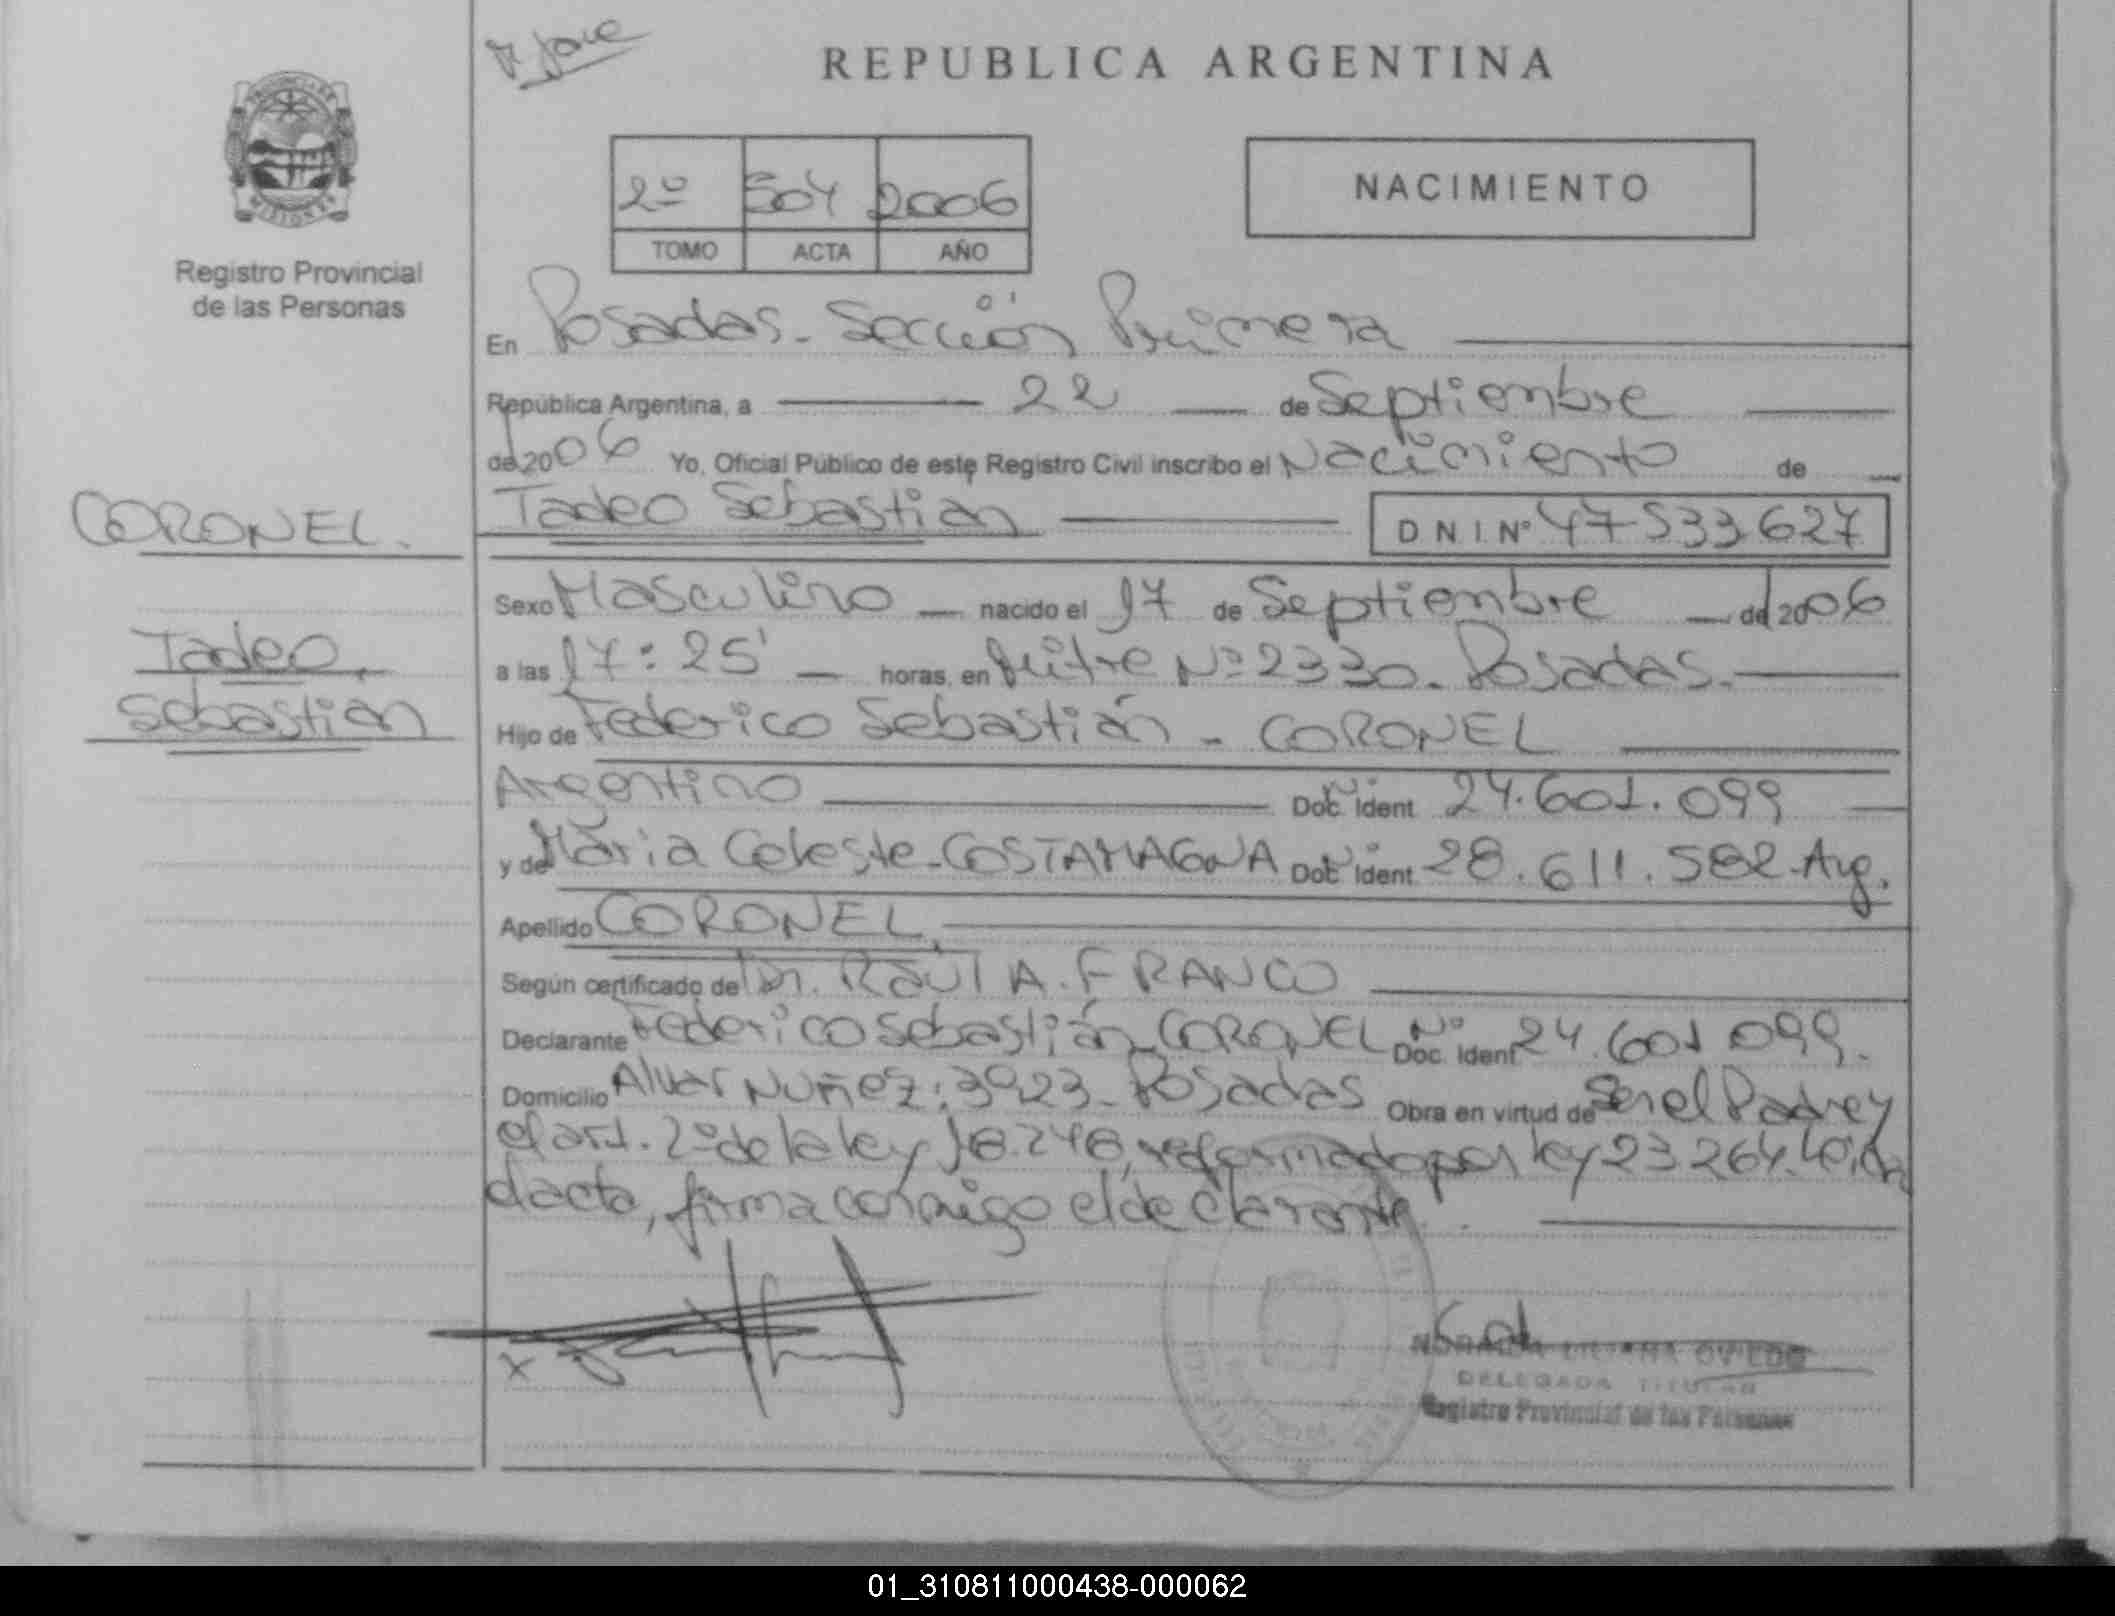 REPUBLICA ARGENTINA
PROVINCIA DE
MISIONES
Registro Provincial
de las Personas
2º 504 2006
TOMO ACTA AÑO
NACIMIENTO
En Posadas. Sección Primera
República Argentina, a 22 de Septiembre
de 2006 Yo, Oficial Público de este Registro Civil inscribo el Nacimiento de
Tadeo Sebastián D N I Nº 47533627
CORONEL.
Tadeo
Sebastián
Sexo Masculino nacido el 17 de Septiembre de 2006
a las 17:25' horas, en Mitre Nº 2330. Posadas.
Hijo de Federico Sebastián - CORONEL
Argentino Doc. Ident 24.601.099
y de María Celeste - COSTAMAGNA Doc. Ident 28.611.582 - Arg.
Apellido CORONEL.
Según certificado de Dr. Raúl A. FRANCO
Declarante Federico Sebastián CORONEL Nº Doc. Ident 24.601.099.
Domicilio Alvar Nuñez: 3923 - Posadas Obra en virtud de Ser el Padre y
el art. 2º de la ley 18.248, reformado por ley 23264. Leída
el acta, firma conmigo el declarante.
x
LILIANA OVIEDO
DELEGADA TITULAR
Registro Provincial de las Personas
01_310811000438-000062